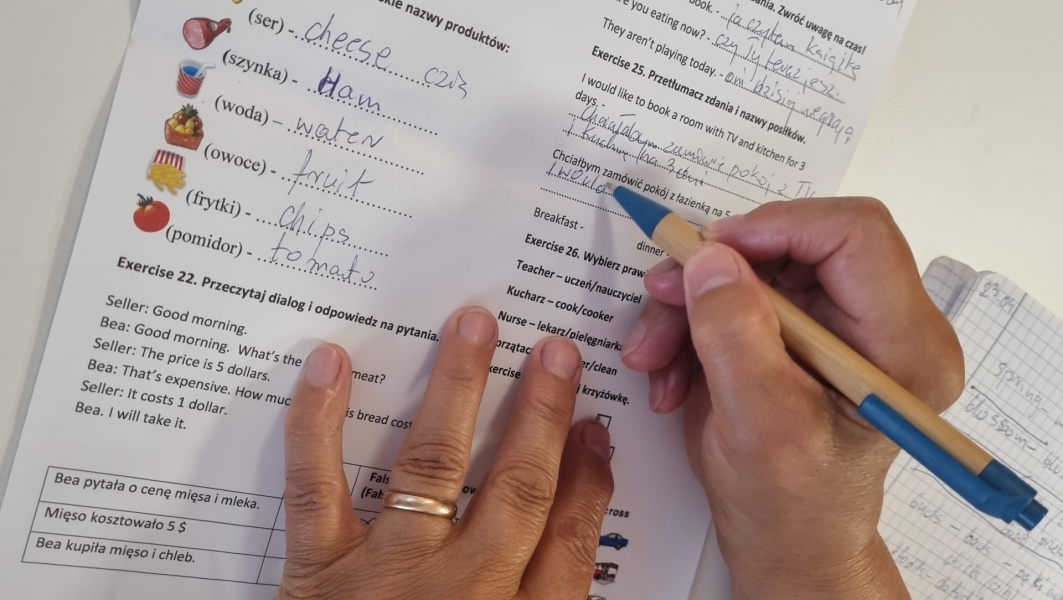 kie nazwy produktów:
(ser) - cheese
(szynka) - Ham
(woda) – water
(owoce) - fruit
(frytki) - chips
(pomidor) - tomato
Exercise 22. Przeczytaj dialog i odpowiedz na pytania.
Seller: Good morning.
Bea: Good morning. What's the meat?
Seller: The price is 5 dollars.
Bea: That's expensive. How muc is bread cost
Seller: It costs 1 dollar.
Bea. I will take it.
Bea pytała o cenę mięsa i mleka.
Mięso kosztowało 5 $
Bea kupiła mięso i chleb.
Fals
(Fał
dania. Zwróć uwagę na czas!
book. - ja czytam książkę
re you eating now? - czy ty teraz jesz.
They aren't playing today. - oni dzisiaj nie grają
Exercise 25. Przetłumacz zdania i nazwy posiłków.
I would like to book a room with TV and kitchen for 3
days. - Chciałabym zamówić pokój z TV
i kuchnią na 3 dni
Chciałbym zamówić pokój z łazienką na 5
I would
Breakfast - dinner -
Exercise 26. Wybierz praw
Teacher – uczeń/nauczyciel
Kucharz – cook/cooker
Nurse – lekarz/pielęgniarka
er/clean
j krzyżówkę.
cross
23.04
blossom -
buds -